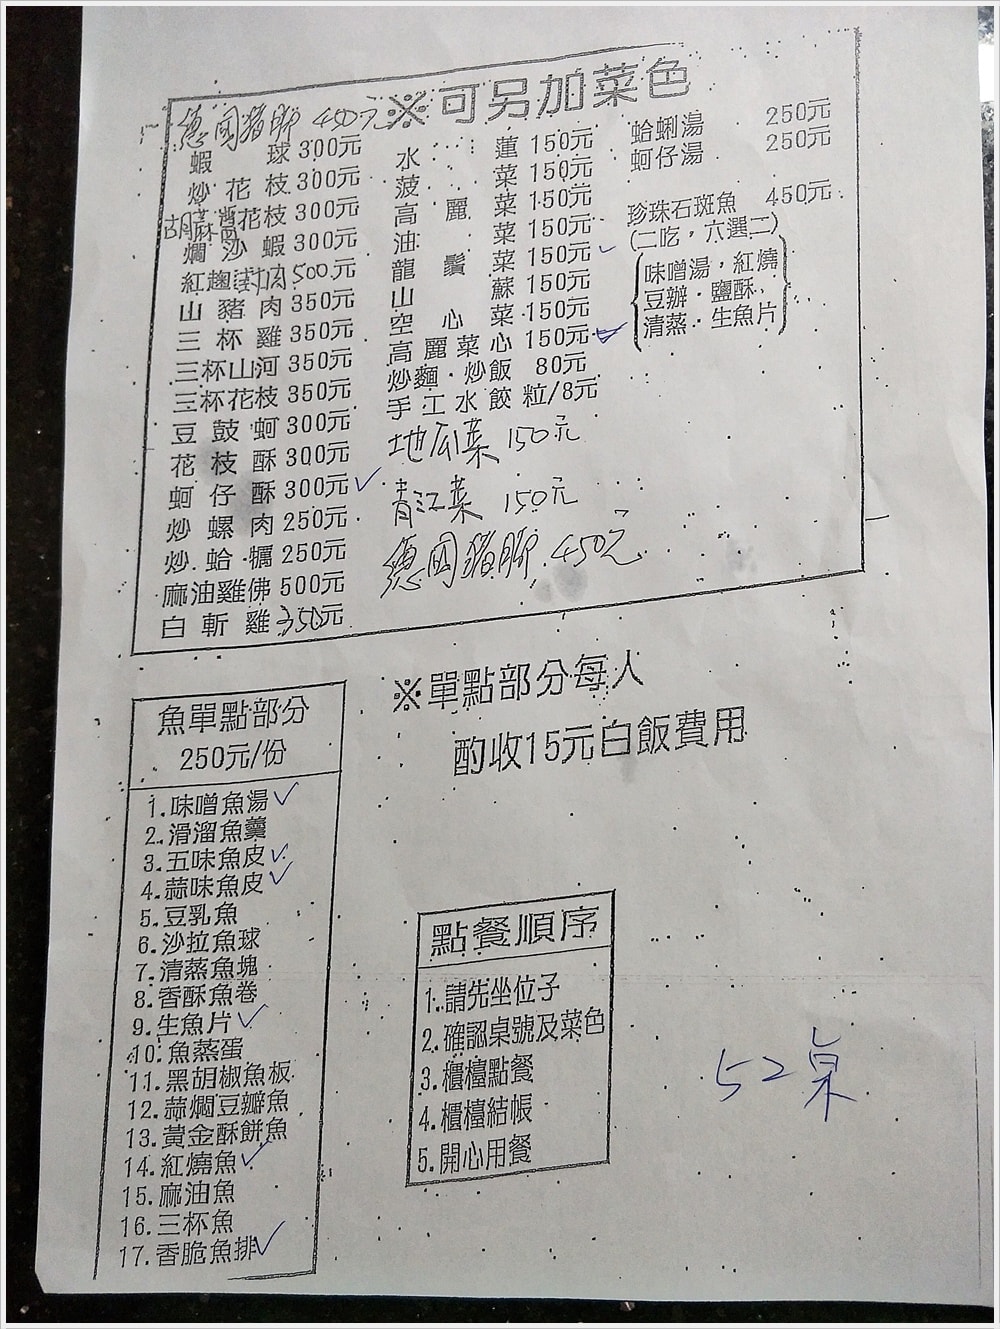 ※可另加菜色
德國豬腳 450元
蝦球 300元
炒花枝 300元
胡麻醬花枝 300元
燜沙蝦 300元
紅麴封肉 500元
山豬肉 350元
三杯雞 350元
三杯山河 350元
三杯花枝 350元
豆鼓蚵 300元
花枝酥 300元
蚵仔酥 300元
炒螺肉 250元
炒蛤蠣 250元
麻油雞佛 500元
白斬雞 350元
水蓮 150元
菠菜 150元
高麗菜 150元
油菜 150元
龍鬚菜 150元
山蘇 150元
空心菜 150元
高麗菜心 150元
炒麵·炒飯 80元
手工水餃 粒/8元
地瓜菜 150元
青江菜 150元
德國豬腳 450元
蛤蜊湯 250元
蚵仔湯 250元
珍珠石斑魚 450元
(二吃,六選二)
味噌湯,紅燒
豆瓣·鹽酥
清蒸·生魚片
※單點部分每人
酌收15元白飯費用
魚單點部分
250元/份
1.味噌魚湯
2.滑溜魚羹
3.五味魚皮
4.蒜味魚皮
5.豆乳魚
6.沙拉魚球
7.清蒸魚塊
8.香酥魚卷
9.生魚片
10.魚蒸蛋
11.黑胡椒魚板
12.蒜燜豆瓣魚
13.黃金酥餅魚
14.紅燒魚
15.麻油魚
16.三杯魚
17.香脆魚排
點餐順序
1.請先坐位子
2.確認桌號及菜色
3.櫃檯點餐
4.櫃檯結帳
5.開心用餐
52桌